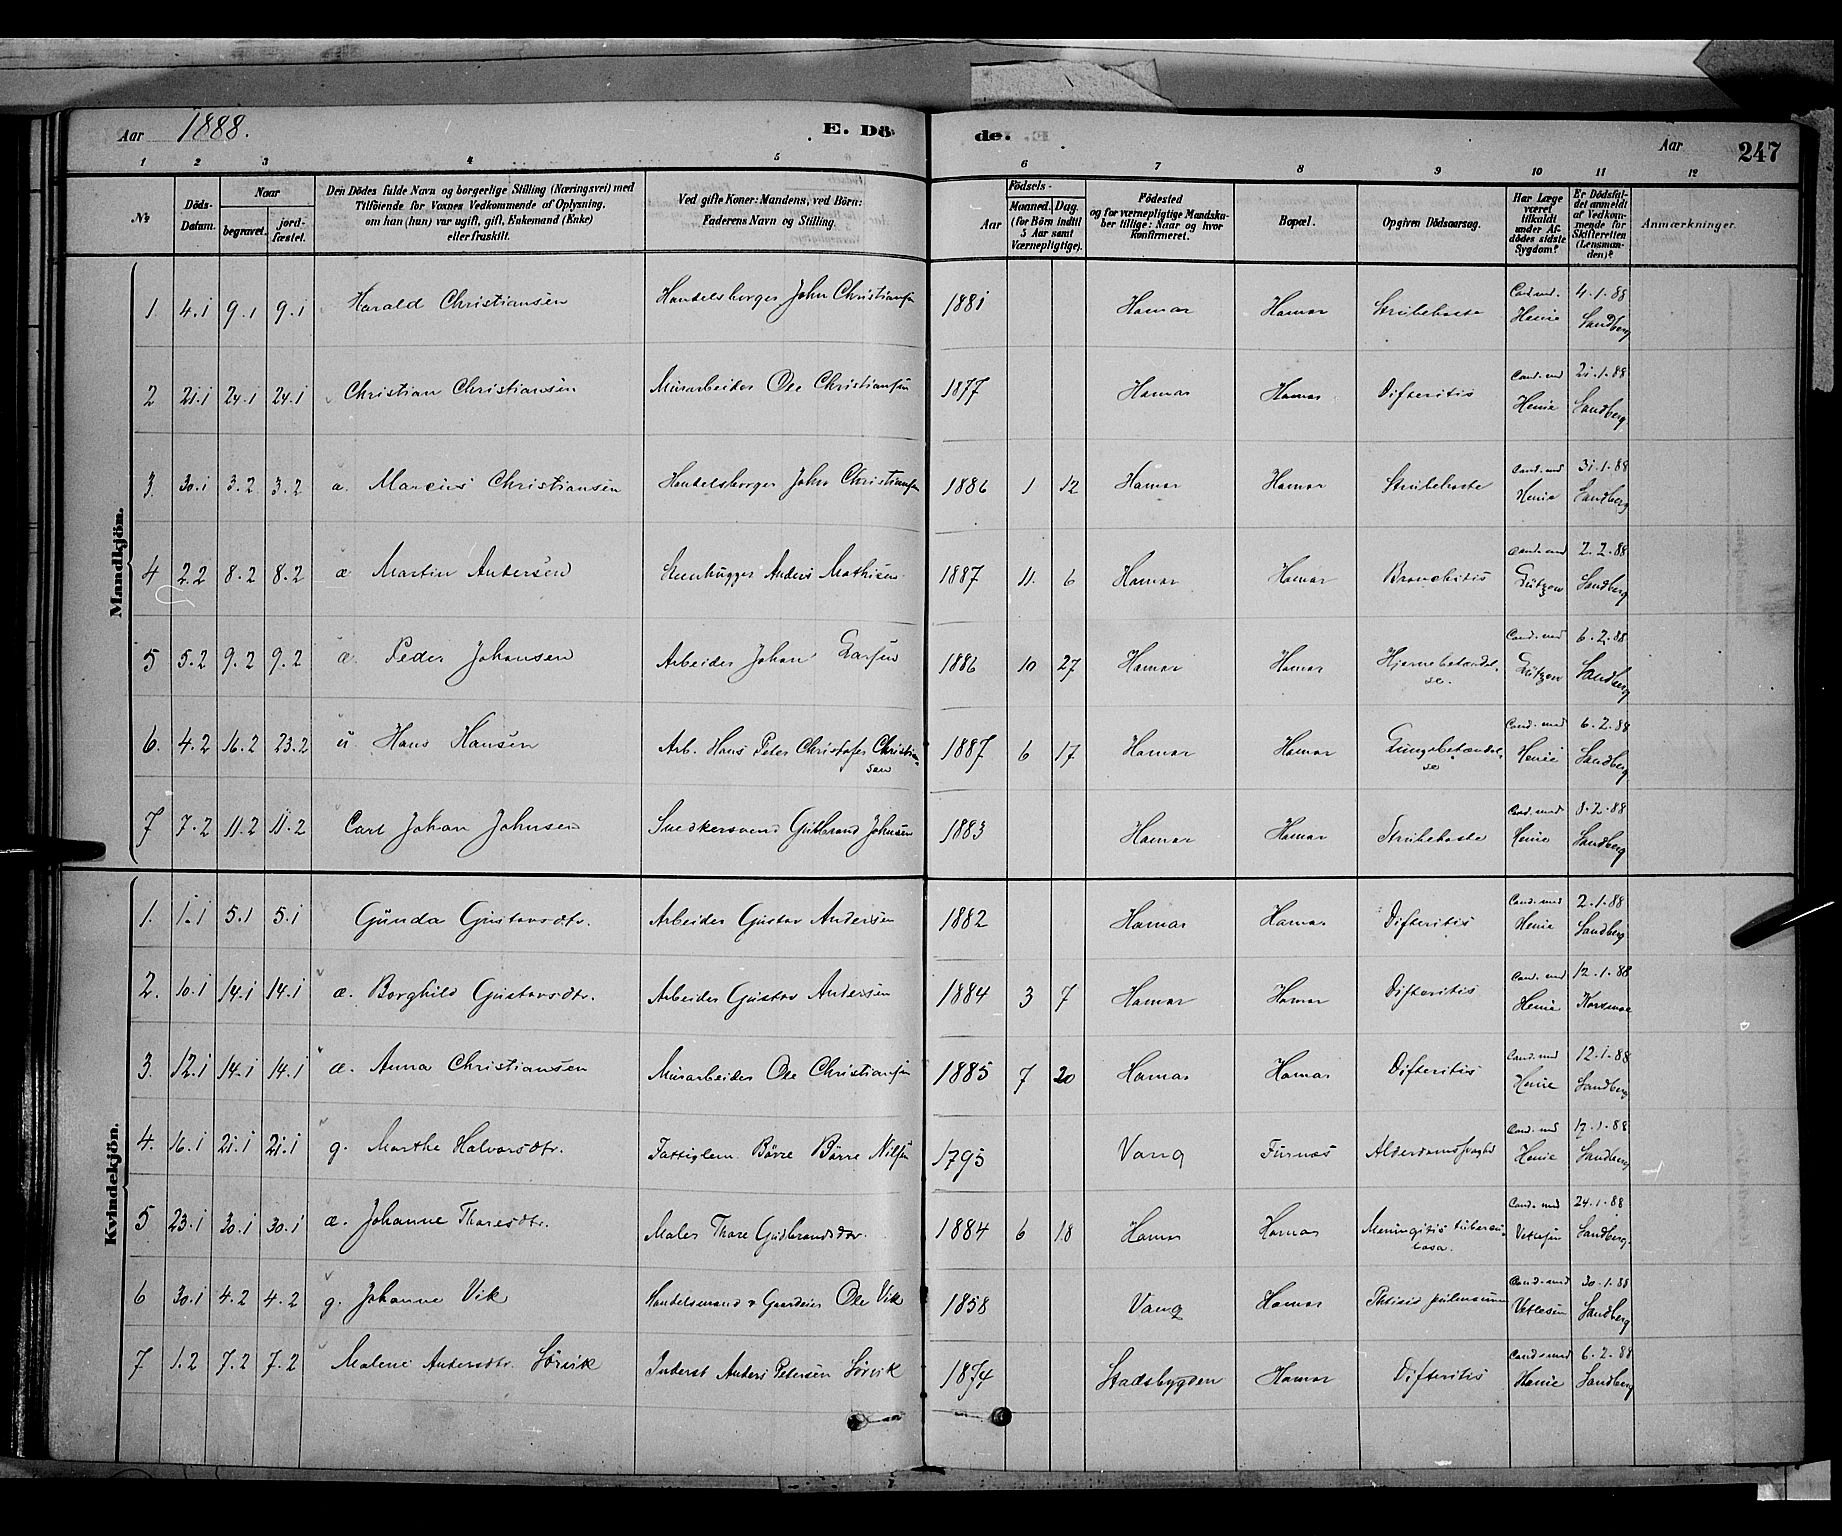 Aar 1888. E. Dö de. Aar 247
1 2 3 4 5 6 7 8 9 10 11 12
No
Döds-Datum.
Naar
begravet.
jord-fæstet.
Den Dödes fulde Navn og borgerlige Stilling (Næringsvei) med
Tilföiende for Voxnes Vedkommende af Oplysning,
om han (hun) var ugift, gift, Enkemand (Enke)
eller fraskilt.
Ved gifte Koner: Mandens, ved Börn:
Faderens Navn og Stilling.
Aar
Födsels-
Maaned. Dag.
(for Börn indtil
5 Aar samt
Værnepligtige).
Födested
og for værnepligtige Mandska-
ber tillige: Naar og hvor
Konfirmeret.
Bopæl.
Opgiven Dödsaarsag.
Har Læge
været
tilkaldt
under Af-
dödes sidste
Sygdom?
Er Dödsfal-
det anmeldt
af Vedkom-
mende for
Skifteretten
(Lensman-
den)?
Anmærkninger.
Mandkjön.
1. 4.1 9.1 9.1 Harald Christiansen Handelsborger John Christiansen 1881 Hamar Hamar Strubehoste Cand. med. Henie 4.1.88 Sandberg
2 21.1 24.1 24.1 Christian Christiansen Murarbeider Ole Christiansen 1877 Hamar Hamar Difteritis Cand. med Henie 21.1.88 Sandberg
3. 30.1 3.2 3.2 æ. Marcus Christiansen Handelsborger John Christiansen 1886 1 12 Hamar Hamar Strubehoste Cand. med Henie 31.1.88 Sandberg
4 2.2 8.2 8.2 æ Martin Andersen Stenhugger Anders Mathisen 1887 11. 6 Hamar Hamar Bronchitis Cand. med Lützow 2.2.88 Sandberg
5 5.2 9.2 9.2 æ. Peder Johansen Arbeider Johan Larsen 1886 10 27 Hamar Hamar Hjernebetændel-
se. Cand. med Lützow 6.2.88 Sandberg
6. 4.2 16.2 23.2 u. Hans Hansen Arb. Hans Peter Christofer Christian-
sen 1887 6 17 Hamar Hamar Lungebetændel-
se Cand. med Henie 6.2.88 Sandberg
7 7.2 11.2 11.2 Carl Johan Johnsen Snedkersvend Gulbrand Johnsen 1883 Hamar Hamar Strubehoste Cand. med Henie 8.2.88 Sandberg
Kvindekjön.
1. 1.1 5.1 5.1 Gunda Gustavsdtr. Arbeider Gustav Andersen 1882 Hamar Hamar Difteritis Cand. med Henie 2.1.88 Sandberg
2. 10.1 14.1 14.1 æ. Borghild Gustavsdtr. Arbeider Gustav Andersen 1884 3 7 Hamar Hamar Difteritis Cand. med Henie 12.1.88
3. 12.1 14.1 14.1 æ. Anna Christiansen Murarbeider Ole Christiansen 1885 7 20 Hamar Hamar Difteritis Cand. med Henie 12.1.88 Sandberg
4. 16.1 21.1 21.1 g. Marthe Halvorsdtr. Fattiglem Börre Börre Nilsen 1795 Vang Furnæs Alderdomssvaghed Cand. med Henie 17.1.88 Sandberg
5 23.1 30.1 30.1 æ. Johanne Thoresdtr. Maler Thore Gudbrandsdor. 1884 6 18 Hamar Hamar Meningitis tubercu-
losa. Cand. med Vetlesen 24.1.88 Sandberg.
6 30.1 4.2 4.2 g. Johanne Vik Handelsmand & Gaardeier Ole Vik 1858 Vang Hamar Phtisis pulmonum Cand. med Vetlesen 30.1.88 Sandberg
7 1.2 7.2 7.2 Malene Andersdtr. Sörvik Inderst Anders Petersen Sörvik 1874 Stadsbygden Hamar Difteritis Cand. med Henie 6.2.88 Sandberg